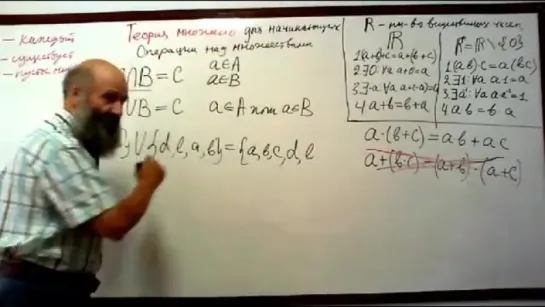 — каждый
— существует
— пустое
Теория множеств для начинающих
Операции над множествами
∩B = C
a∈A
a∈B
∪B = C
a∈A или a∈B
}∪{d,e,a,b}={a,b,c,d,e
R - мн-во вещественных чисел
R
1(a+b)+c=a+(b+c)
2∃0:∀a a+0=a
4 a+b=b+a
R*=R\{0}
1(ab)c=a(bc)
2∃1:∀a a·1=a
4 ab=b·a
a·(b+c)=ab+ac
a+(b·c)=(a+b)·(a+c)